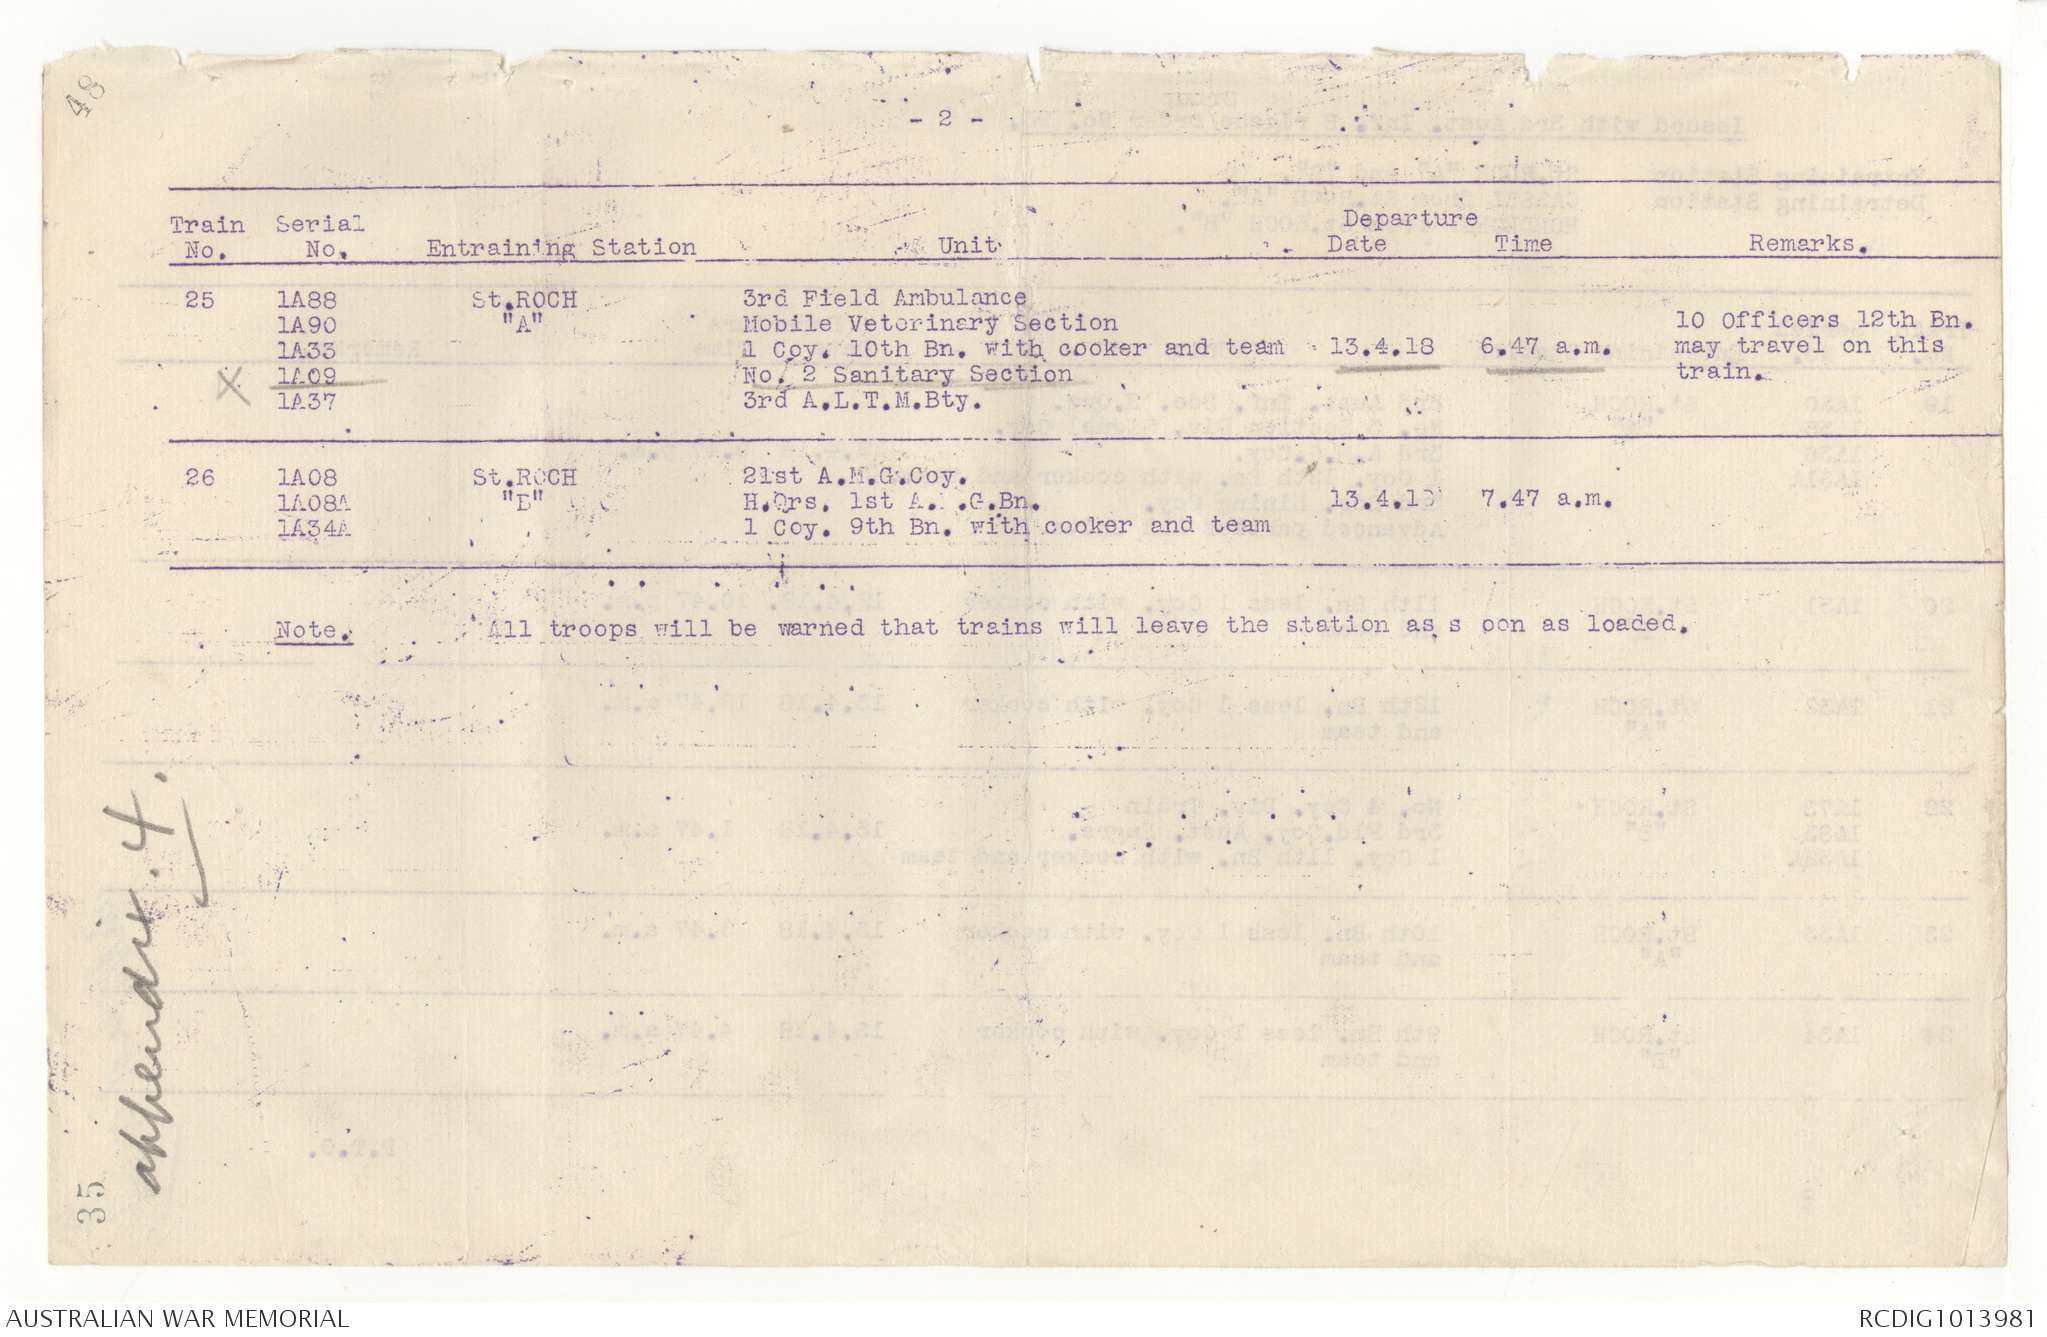 48
- 2 -
Train Serial Departure
No. No. Entraining Station Unit Date Time Remarks.
25 1A88 St.ROCH 3rd Field Ambulance
1A90 "A" Mobile Veterinary Section 10 Officers 12th Bn.
1A33 1 Coy. 10th Bn. with cooker and team 13.4.18 6.47 a.m. may travel on this
X 1A09 No. 2 Sanitary Section train.
1A37 3rd A.L.T.M.Bty.
26 1A08 St.ROCH 21st A.M.G.Coy.
1A08A "B" H.Qrs. 1st A. .G.Bn. 13.4.18 7.47 a.m.
1A34A 1 Coy. 9th Bn. with cooker and team
Note. All troops will be warned that trains will leave the station as s oon as loaded.
appendix. 4.
35
AUSTRALIAN WAR MEMORIAL RCDIG1013981